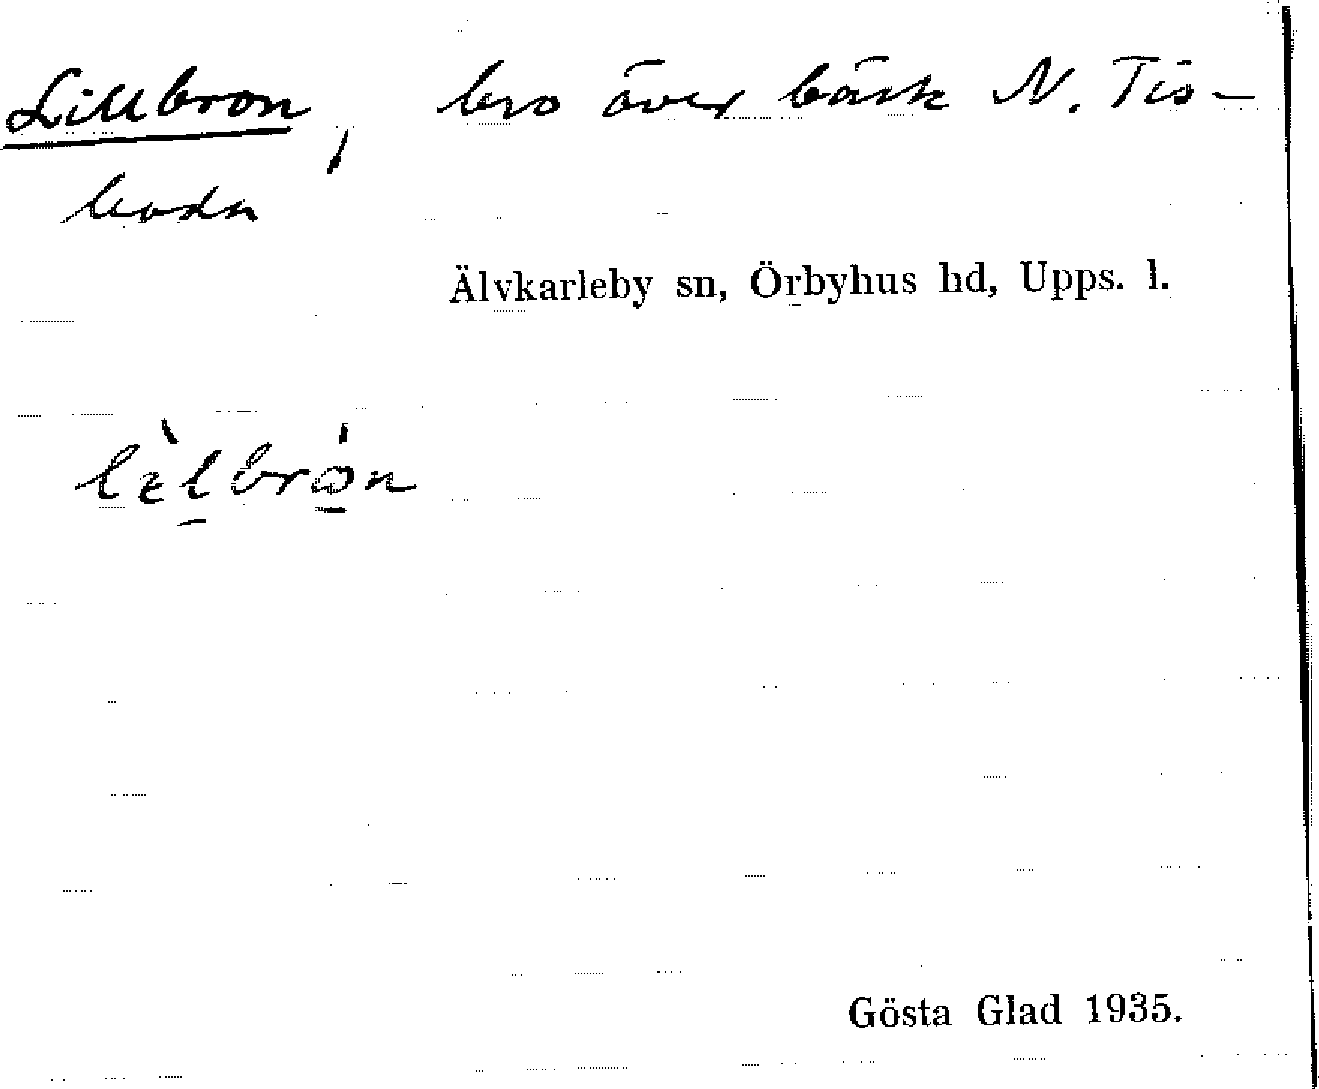 Lillbron, bro över bäck N. Tis-
boda
Älvkarleby sn, Örbyhus hd, Upps. l.
Gösta Glad 1935.